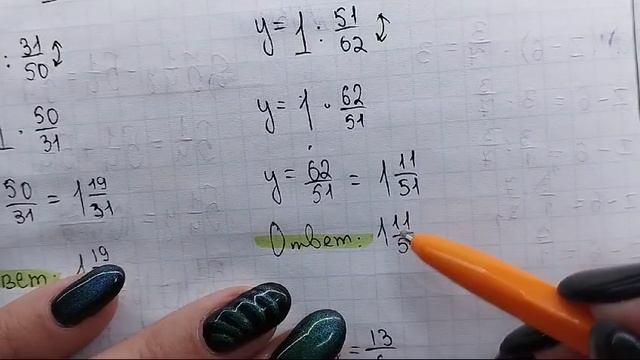 : 31/50
· 50/31
50/31 = 1 19/31
вет: 1 19
y = 1 : 51/62
y = 1 · 62/51
y = 62/51 = 1 11/51
Ответ: 1 11/5
= 13